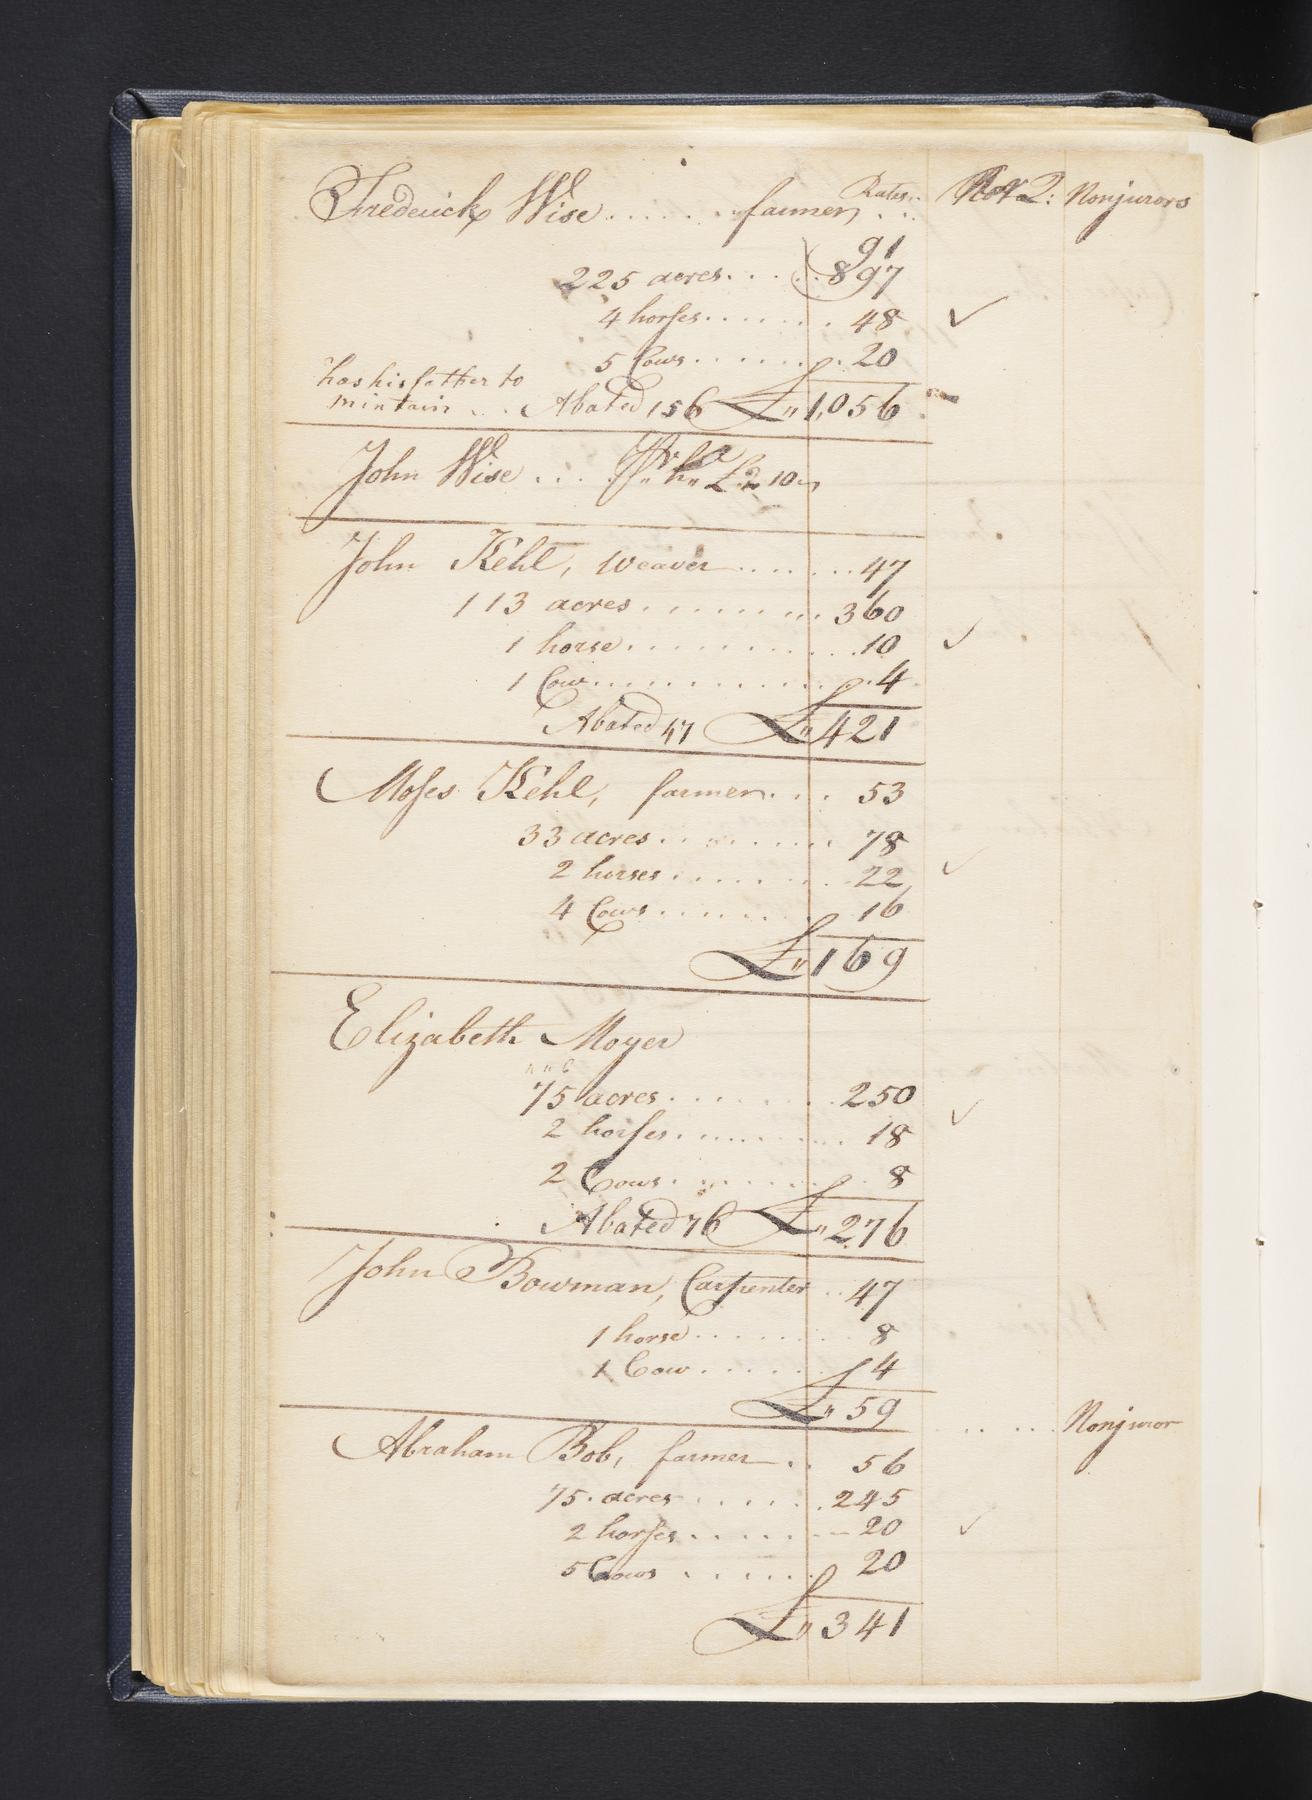 Rates Nonjurors
Frederick Wise ...... farmer, ..
91
225 acres .... 897
4 horses ....... 48 ✓
5 Cows ...... 20
has his father to
mintain ... Abated 156 £" 1,056
John Wise ... £2 10
John Kehl, weaver ....... 47
113 acres ......... 360
1 horse ............ 10 ✓
1 Cow ............ 4
Abated 47 £" 421
Moses Kehl, farmer ... 53
33 acres ......... 78
2 horses ....... 22 ✓
4 Cows ....... 16
£" 169
Elizabeth Moyer
75 acres ........ 250
2 horses ......... 18 ✓
2 Cows ....... 8
Abated 76 £" 276
John Bowman, Carpenter .. 47
1 horse ....... 8
1 Cow ...... 4
£" 59 ...... Nonjuror
Abraham Bob, farmer .. 56
75 acres ...... 245
2 horses ...... 20 ✓
5 Cows ...... 20
£" 341